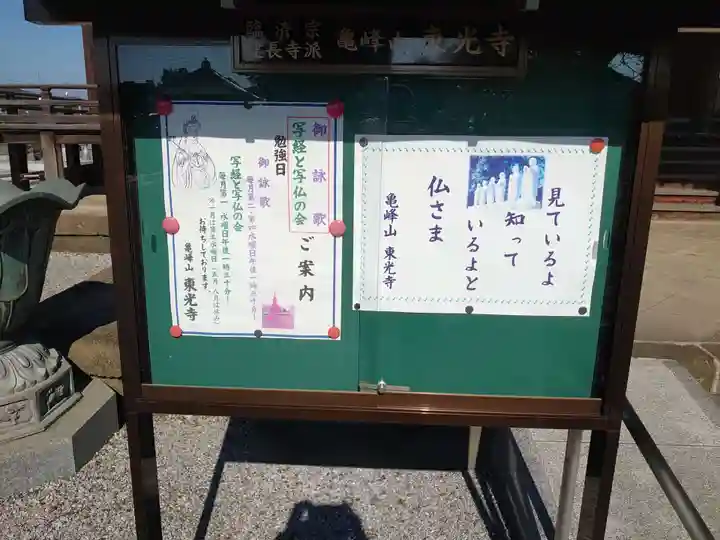 臨済宗
建長寺派
亀峰山 東光寺
御詠歌
写経と写仏の会
ご案内
勉強日
御詠歌
毎月第二・第四水曜日午後一時三十分~
写経と写仏の会
毎月第一水曜日午後一時三十分~
お待ちしております。
亀峰山 東光寺
見ているよ
知って
いるよと
仏さま
亀峰山 東光寺